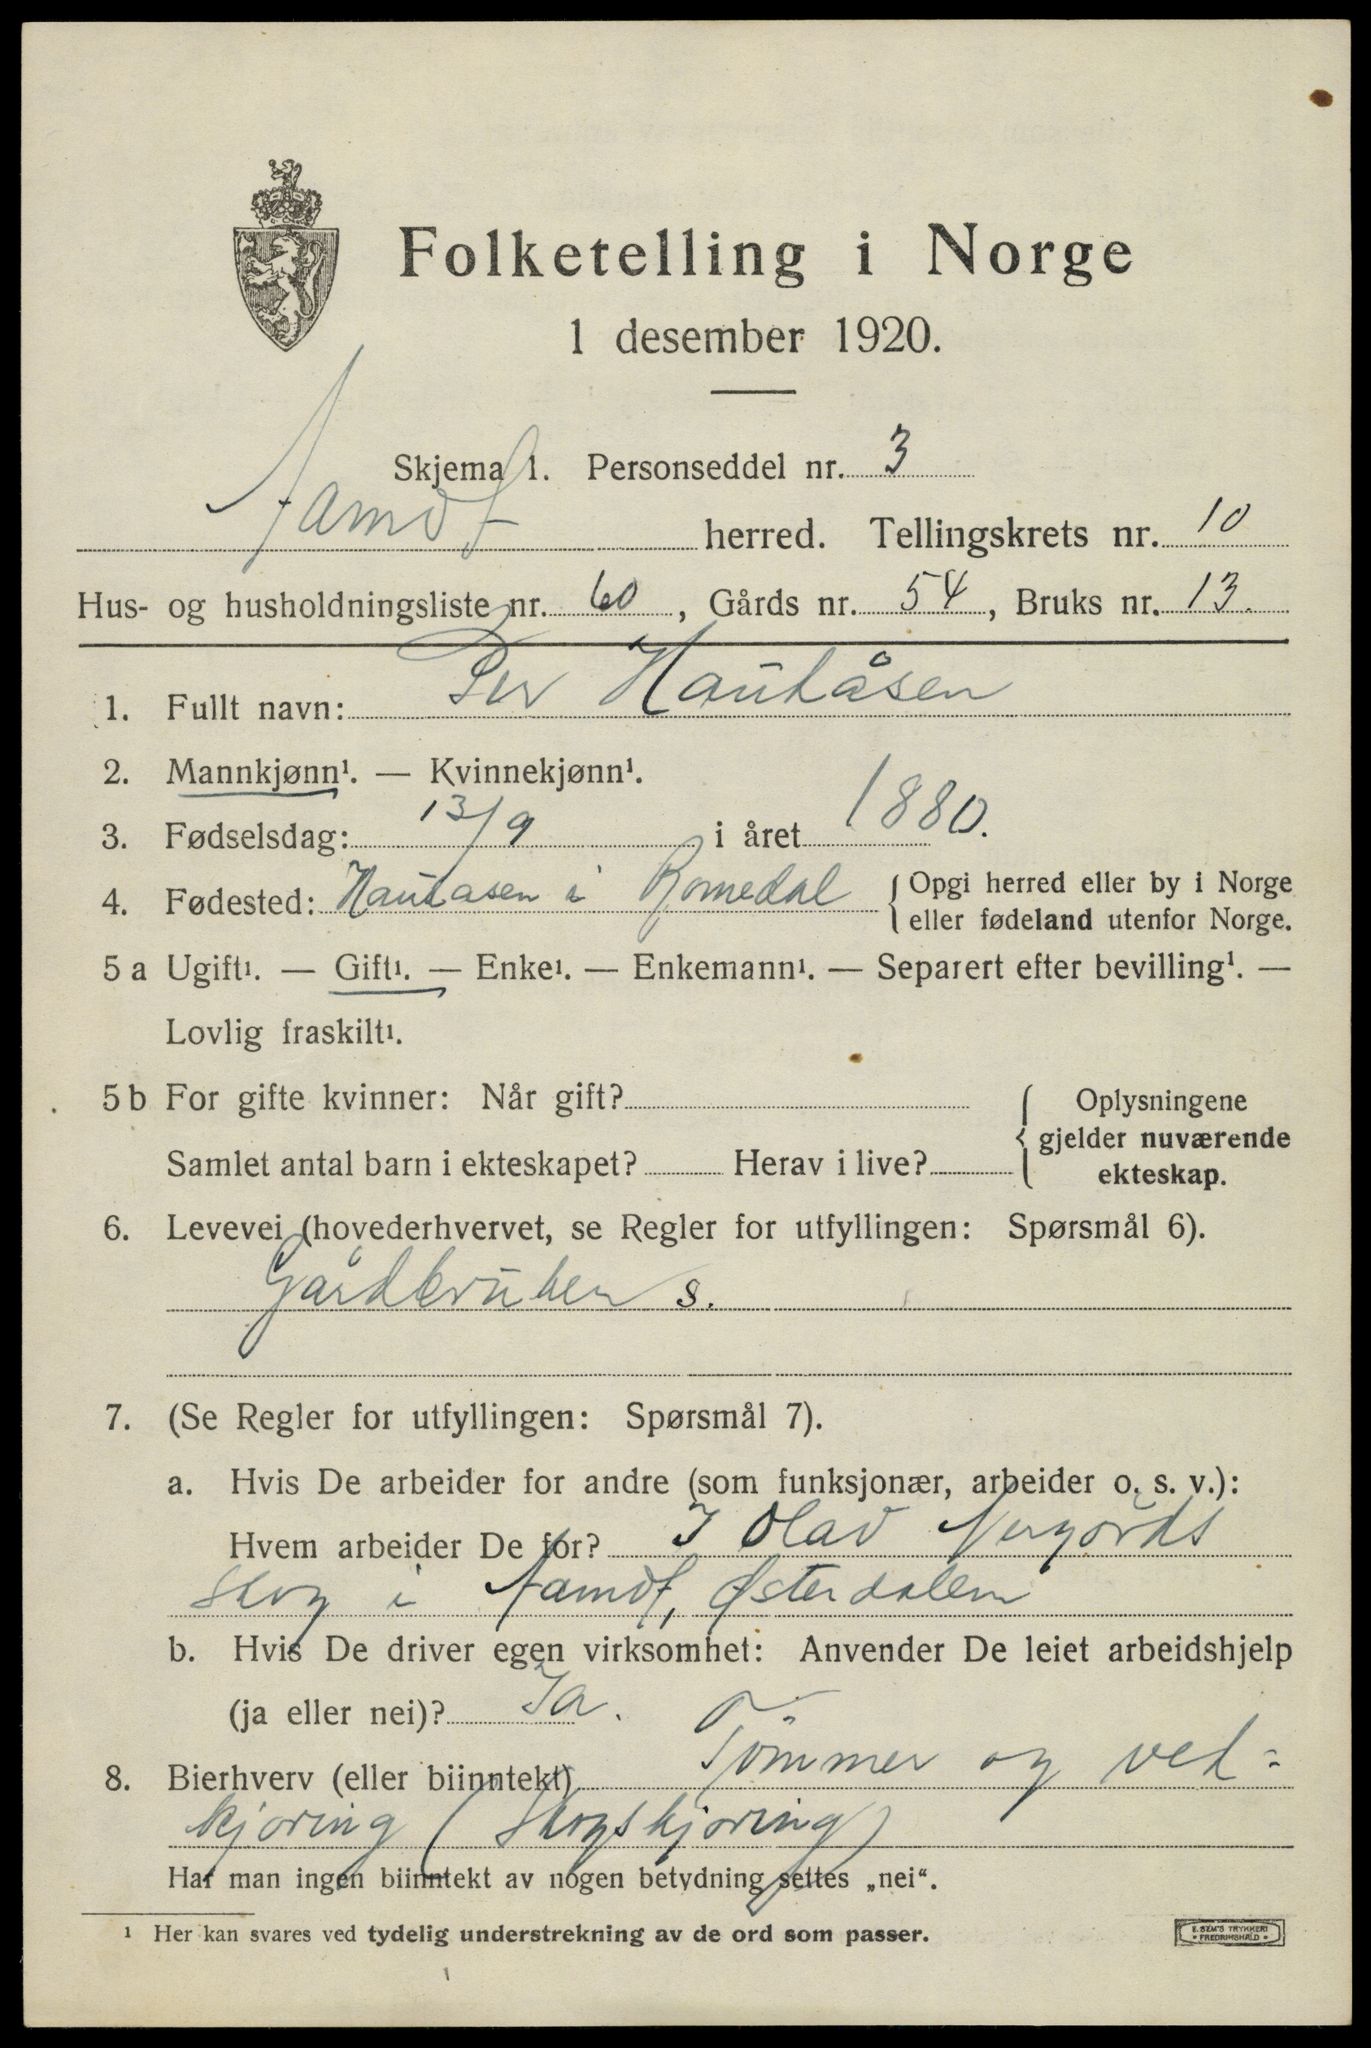 Folketelling i Norge
1 desember 1920.
Skjema 1. Personseddel nr. 3
Aamot herred. Tellingskrets nr. 10
Hus- og husholdningsliste nr. 60, Gårds nr. 54, Bruks nr. 13.
1. Fullt navn: Per Haukåsen
2. Mannkjønn¹. — Kvinnekjønn¹.
3. Fødselsdag: 13/9 i året 1880.
4. Fødested: Haukåsen i Romedal { Opgi herred eller by i Norge
eller fødeland utenfor Norge.
5 a Ugift¹. — Gift¹. — Enke¹. — Enkemann¹. — Separert efter bevilling¹. —
Lovlig fraskilt¹.
5 b For gifte kvinner: Når gift?
Samlet antal barn i ekteskapet? Herav i live?
{ Oplysningene
gjelder nuværende
ekteskap.
6. Levevei (hovederhvervet, se Regler for utfyllingen: Spørsmål 6).
Gårdbruker s.
7. (Se Regler for utfyllingen: Spørsmål 7).
a. Hvis De arbeider for andre (som funksjonær, arbeider o. s. v.):
Hvem arbeider De for? I Olav
skog i Aamot, Østerdalen
b. Hvis De driver egen virksomhet: Anvender De leiet arbeidshjelp
(ja eller nei)? Ja.
8. Bierhverv (eller biinntekt) Tömmer og ved-
kjøring (Skogskjøring)
Har man ingen biinntekt av nogen betydning settes „nei“.
¹ Her kan svares ved tydelig understrekning av de ord som passer.
E. SEM'S TRYKKERI
• FREDRIKSHALD •